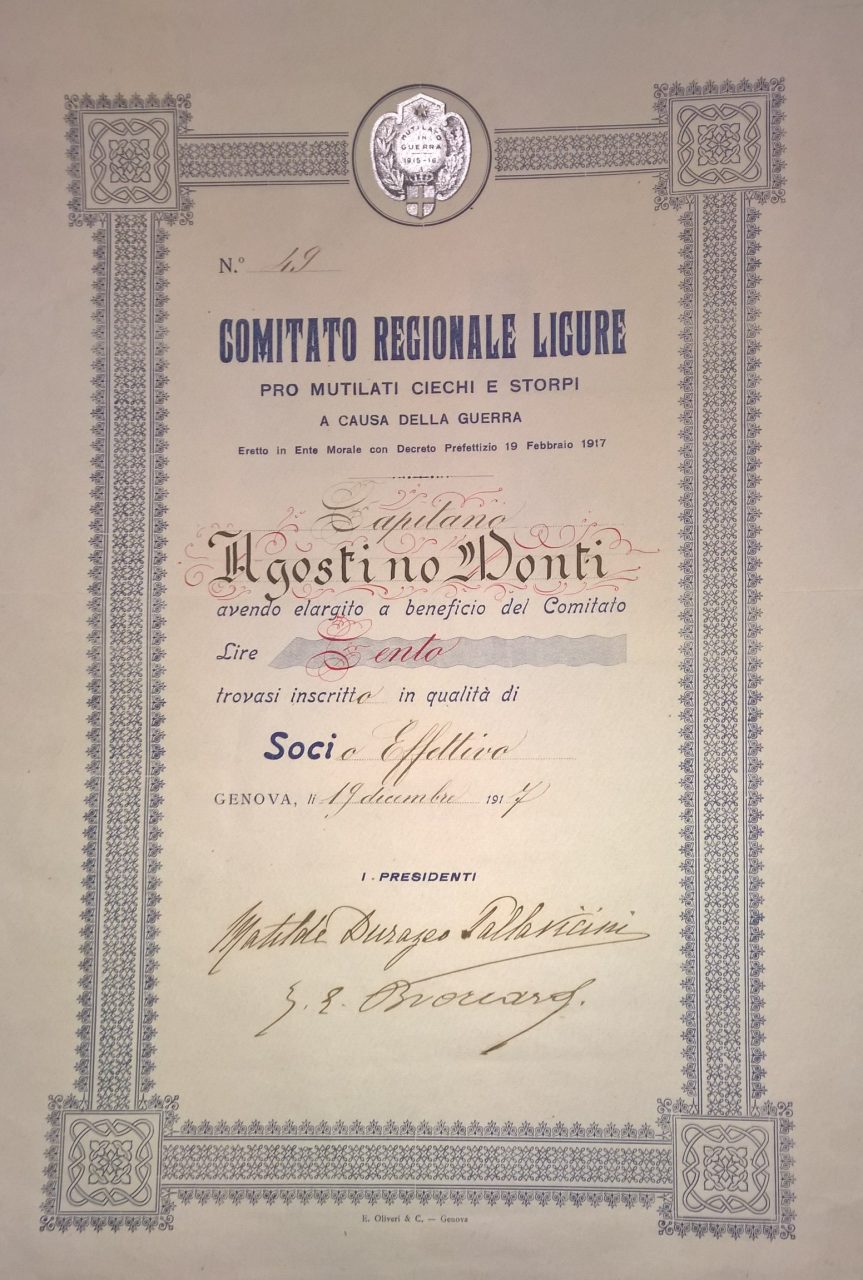 MUTILATO
IN
GUERRA
1915-16
N.º 49
COMITATO REGIONALE LIGURE
PRO MUTILATI CIECHI E STORPI
A CAUSA DELLA GUERRA
Eretto in Ente Morale con Decreto Prefettizio 19 Febbraio 1917
Capitano
Agostino Monti
avendo elargito a beneficio del Comitato
Lire Cento
trovasi inscritto in qualità di
Socio Effettivo
GENOVA, li 19 decembre 1917
I PRESIDENTI
Matilde Durazzo Pallavicini
E. Oliveri & C. — Genova